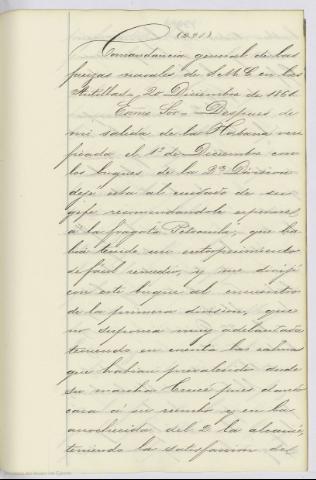 (291)
Comandancia general de las
fuerzas navales de S.M.C. en las
Antillas, 20 Diciembre de 1861.
Exmo Sor = Despues de
mi salida de la Habana veri
ficada el 1º de Diciembre con
los buques de la 2ª Division
dejé esta al cuidado de su
gefe recomendandole esperase
á la fragata Petronila, que ha
bia tenido un entorpecimiento
de fácil remedio, y me dirijí
con este buque al encuentro
de la primera división, que
no suponia muy adelantada
teniendo en cuenta las calmas
que habian prevalecido desde
su marcha. Crucé pues dando
caza á su rumbo y en la
anochecida del 2 la alcancé,
teniendo la satisfaccion del